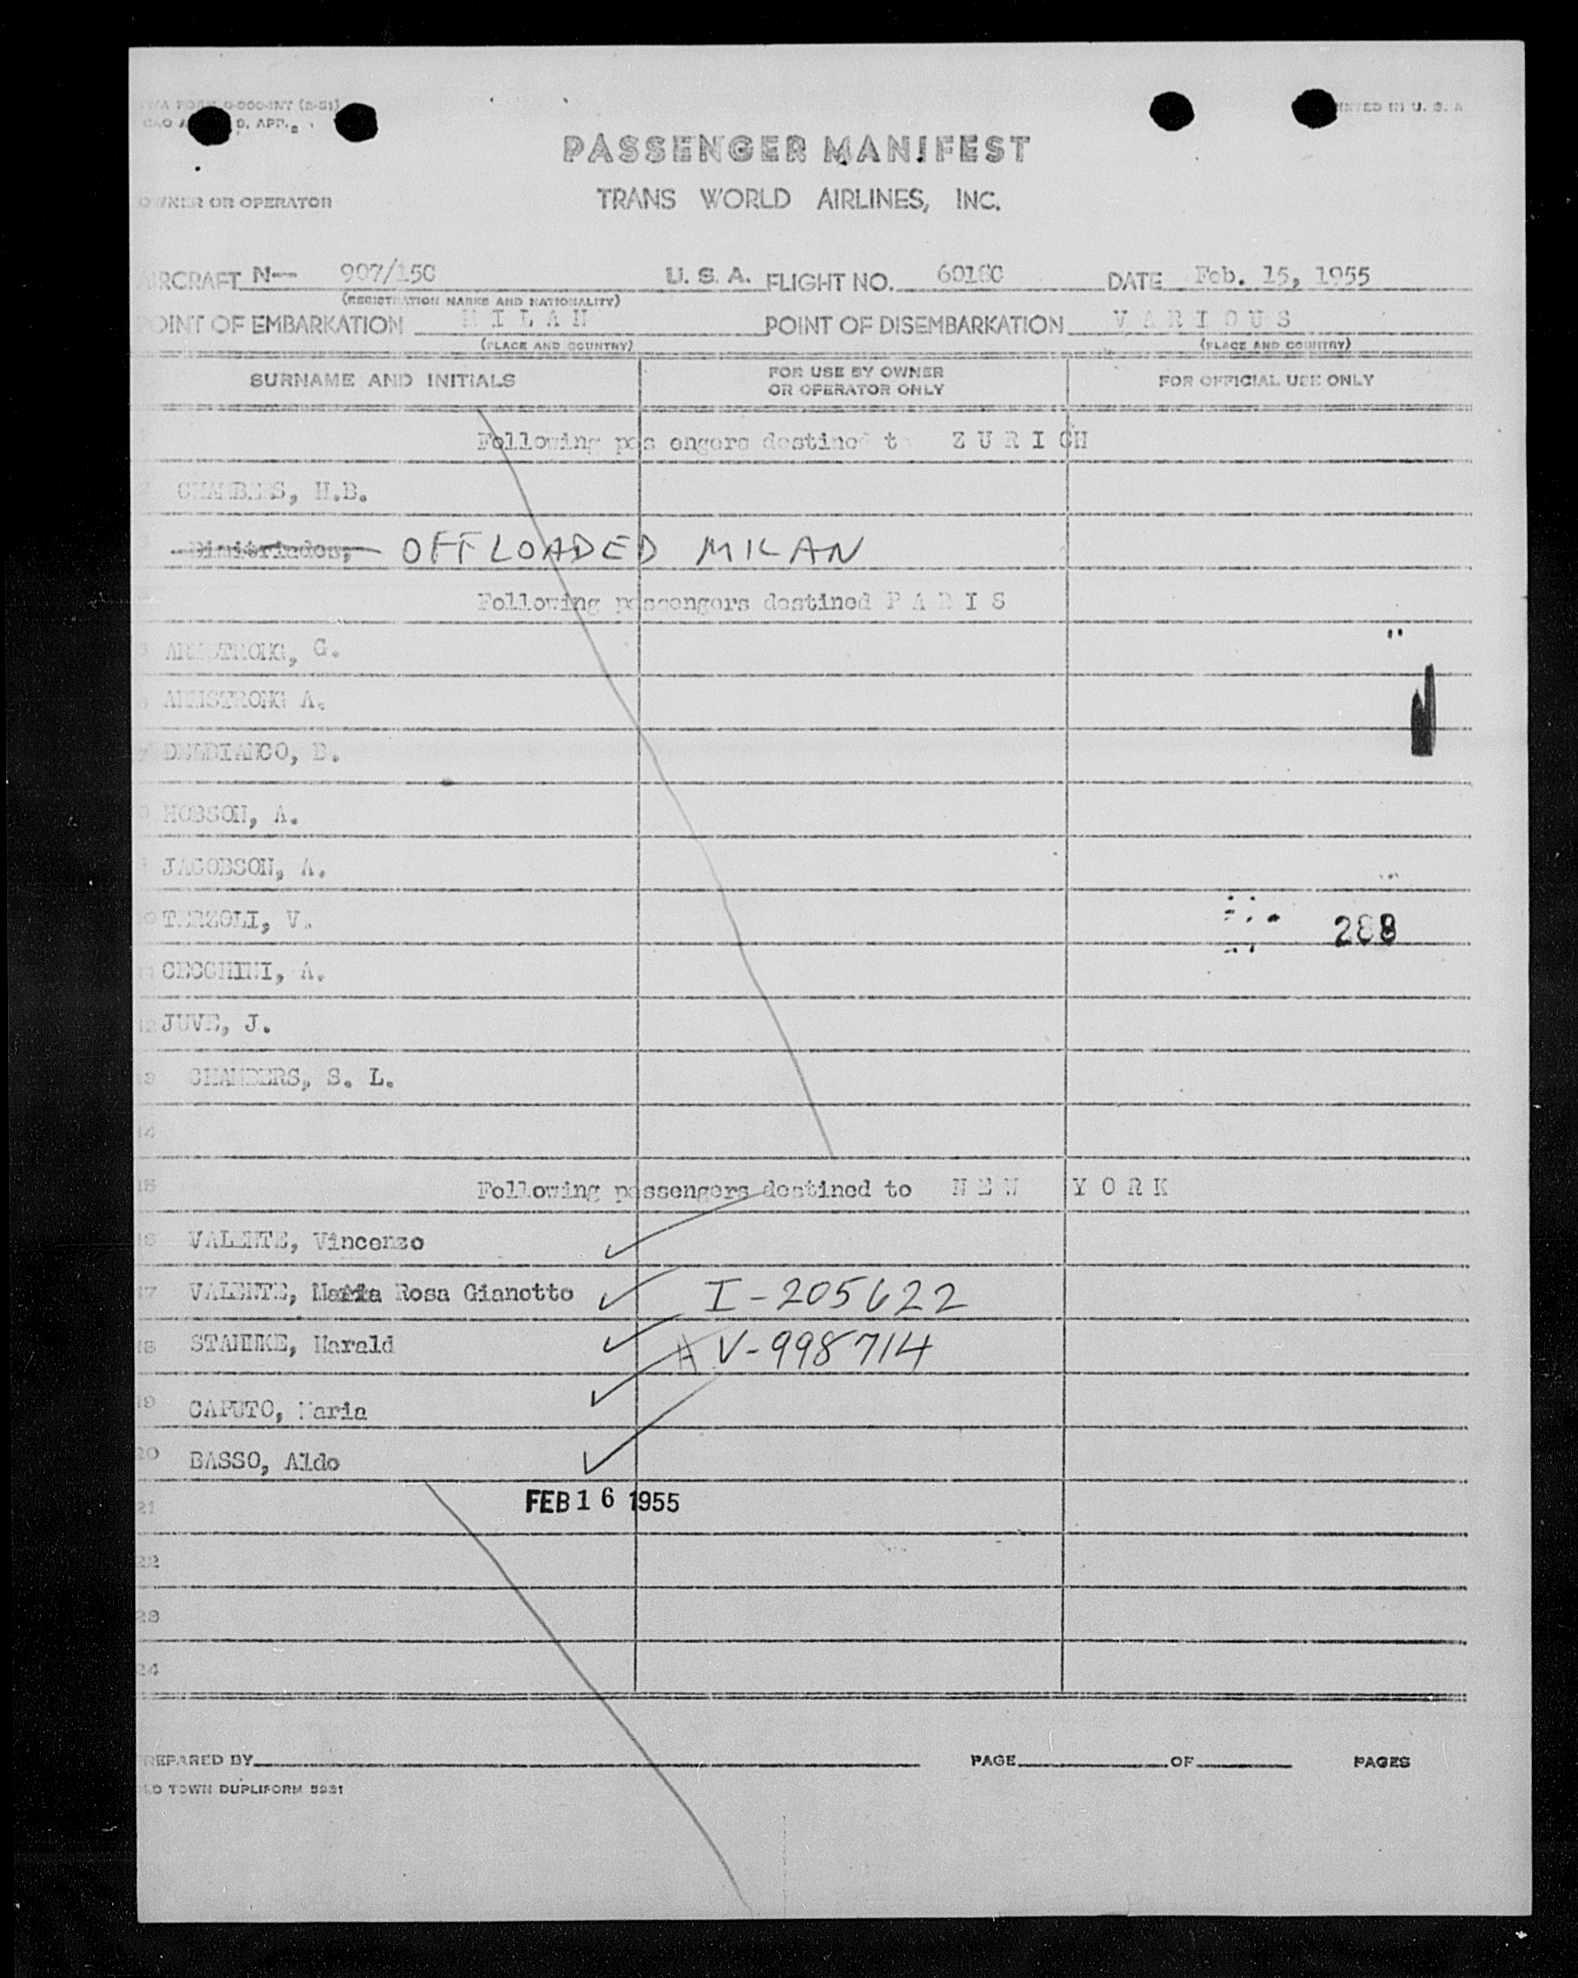 PASSENGER MANIFEST
PRINTED IN U. S. A
TRANS WORLD AIRLINES, INC.
OWNER OR OPERATOR
AIRCRAFT N-- 907/15C U. S. A. FLIGHT NO. DATE Feb. 15, 1955
(REGISTRATION MARKS AND NATIONALITY)
POINT OF EMBARKATION MILAN POINT OF DISEMBARKATION VARIOUS
(PLACE AND COUNTRY) (PLACE AND COUNTRY)
SURNAME AND INITIALS FOR USE BY OWNER OR OPERATOR ONLY FOR OFFICIAL USE ONLY
Following passengers destined to ZURICH
CHAMBERS, H.B.
OFFLOADED MILAN
Following passengers destined PARIS
ARMSTRONG, G.
ARMSTRONG A.
DELBIANCO,
HOBSON, A.
JACOBSON, A.
10 TERZOLI, V. 288
11 CECCHINI, A.
12 JUVE, J.
13 CHAMBERS, S. L.
14
15 Following passengers destined to NEW YORK
16 VALENTE, Vincenzo
17 VALENTE, Maria Rosa Gianotto I-205622
18 STAHNKE, Harald V-998714
19 CAPUTO, Maria
20 BASSO, Aldo
21 FEB 16 1955
22
23
24
PREPARED BY PAGE OF PAGES
OLD TOWN DUPLIFORM 5931